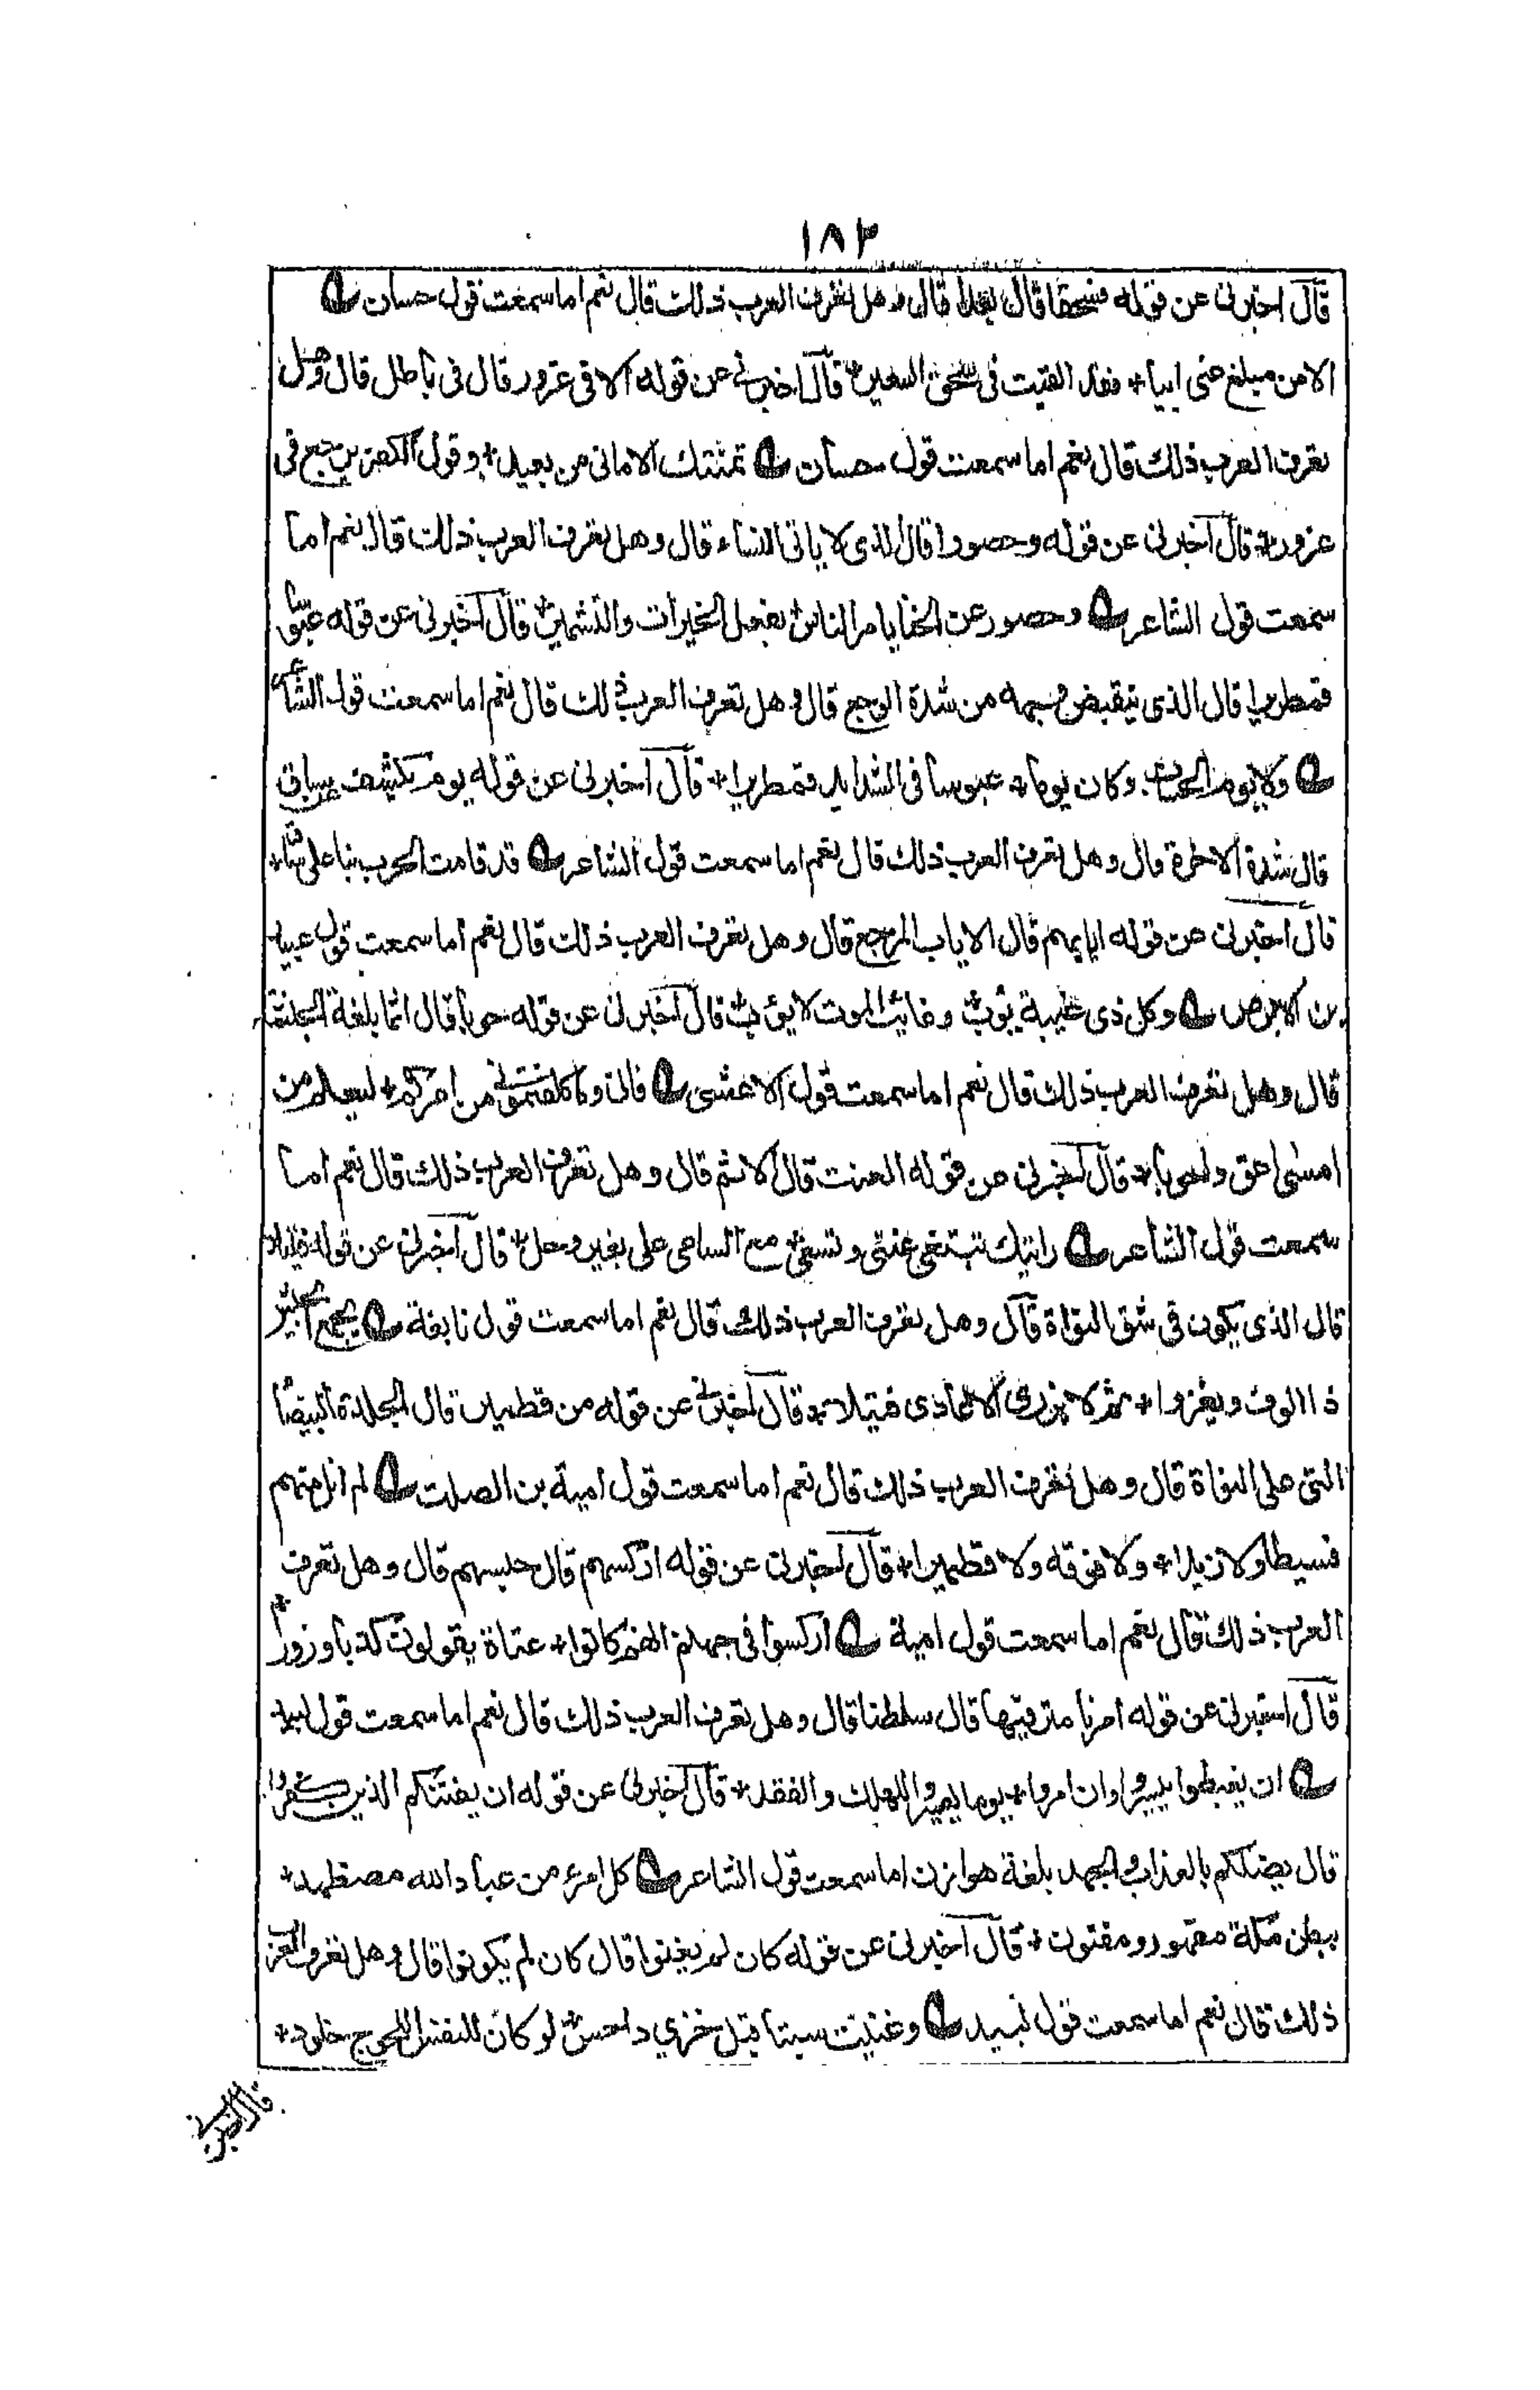 ١٨٢
قال اخبرني عن قوله فسحقا قال بعدا قال وهل تعرف العرب ذلك قال نعم اما سمعت قول حسان
الا من مبلغ عني ابيا + فقد القيت في سحق السعير + قال اخبرني عن قوله الا في غرور قال في باطل قال وهل
تعرف العرب ذلك قال نعم اما سمعت قول حسان تمنتك الاماني من بعيد + وقول الكفر يرجع في
غرور + قال اخبرني عن قوله وحصورا قال الذي لا ياتي النساء قال وهل تعرف العرب ذلك قال نعم اما
سمعت قول الشاعر وحصور عن الخنا يامر الناس بفعل الخيرات والتشمير + قال اخبرني عن قوله عبوسا
قمطريرا قال الذي ينقبض وجهه من شدة الوجع قال وهل تعرف العرب ذلك قال نعم اما سمعت قول الشاعر
ولا يوم الحساب وكان يوما + عبوسا في الشدايد قمطريرا + قال اخبرني عن قوله يوم يكشف عن ساق
قال شدة الاخرة قال وهل تعرف العرب ذلك قال نعم اما سمعت قول الشاعر قد قامت الحرب بنا على ساق +
قال اخبرني عن قوله ايابهم قال الاياب المرجع قال وهل تعرف العرب ذلك قال نعم اما سمعت قول عبيد
بن الابرص وكل ذي غيبة يؤب وغائب الموت لا يؤب قال اخبرني عن قوله حوبا قال اثما بلغة الحبشة
قال وهل تعرف العرب ذلك قال نعم اما سمعت قول الاعشى فاني وما كلفتموني من امركم + ليعلم من
امسى اعق واحوبا + قال اخبرني عن قوله العنت قال الاثم قال وهل تعرف العرب ذلك قال نعم اما
سمعت قول الشاعر رايتك تبتغي عنتي وتسعى + مع الساعي علي بغير دحل + قال اخبرني عن قوله فتيلا
قال الذي يكون في شق النواة قال وهل تعرف العرب ذلك قال نعم اما سمعت قول نابغة يجمع الجيش
ذا الالوف ويغزوا + ثم لا يرزء الاعادي فتيلا + قال اخبرني عن قوله من قطمير قال الجلدة البيضاء
التي على النواة قال وهل تعرف العرب ذلك قال نعم اما سمعت قول امية بن الصلت لم انل منهم
فسيطا ولا زبدا + ولا فوقه ولا قطميرا + قال اخبرني عن قوله اركسهم قال حبسهم قال وهل تعرف
العرب ذلك قال نعم اما سمعت قول امية اركسوا في جهنم انهم كانوا + عتاة يقولون كذبا وزورا +
قال اخبرني عن قوله امرنا مترفيها قال سلطنا قال وهل تعرف العرب ذلك قال نعم اما سمعت قول لبيد
ان يغبطوا ييسروا وان امروا + يوما يصيروا للهلك والفقد + قال اخبرني عن قوله ان يفتنكم الذين كفروا
قال يضلكم بالعذاب والجهد بلغة هوازن اما سمعت قول الشاعر كل امرء من عباد الله مضطهد +
ببطن مكة مقهور ومفتون + قال اخبرني عن قوله كان لم يغنوا قال كان لم يكونوا قال وهل تعرف العرب
ذلك قال نعم اما سمعت قول لبيد وغنيت سبتا قبل مجري داحس + لو كان للنفس اللجوج خلود +
قال اخبرني